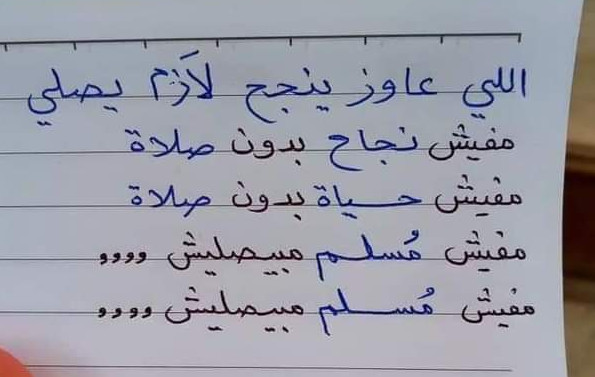 اللي عاوز ينجح لَازم يصلي
مفيش نجاح بدون صلاة
مفيش حياة بدون صلاة
مفيش مُسلم مبيصليش وووو
مفيش مُسلم مبيصليش وووو